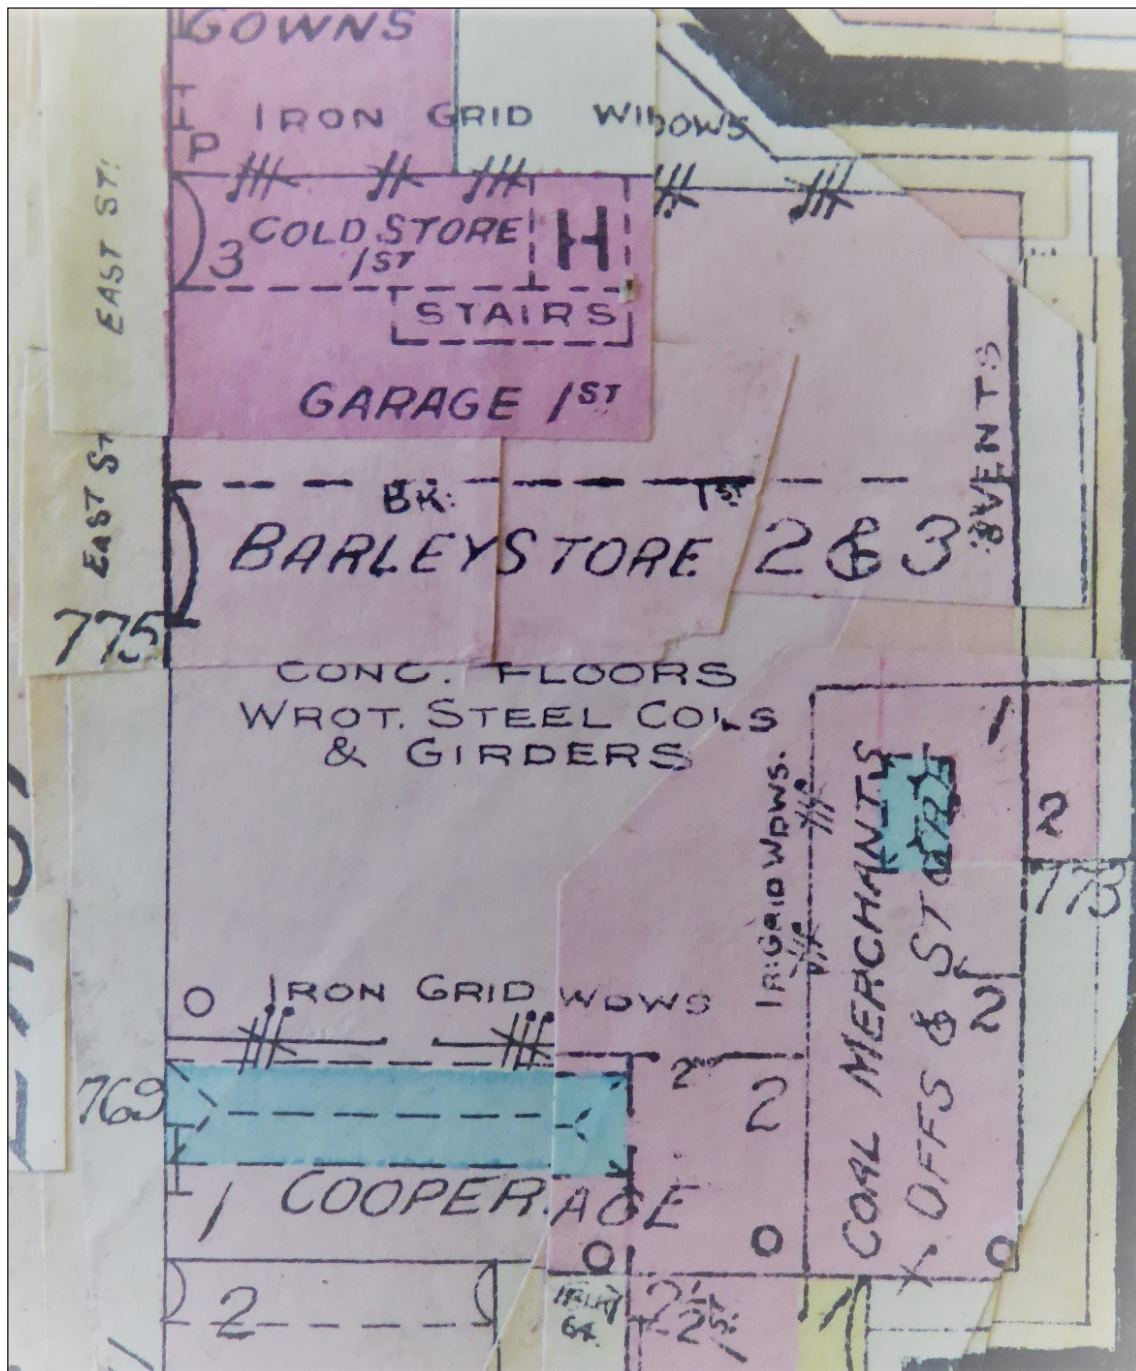 GOWNS
IRON GRID WIDOWS
P
EAST ST.
EAST ST.
3
COLD STORE
1ST
H
STAIRS
GARAGE 1ST
EAST ST
VENTS
BK: 1ST
BARLEY STORE 2 & 3
775
CONC. FLOORS
WROT. STEEL COLS
& GIRDERS
IR: GRID WDWS.
COAL MERCHANTS
OFFS & STO
2
773
2
O IRON GRID WDWS
769
2
2
1 COOPERAGE
O
O
O
2
2